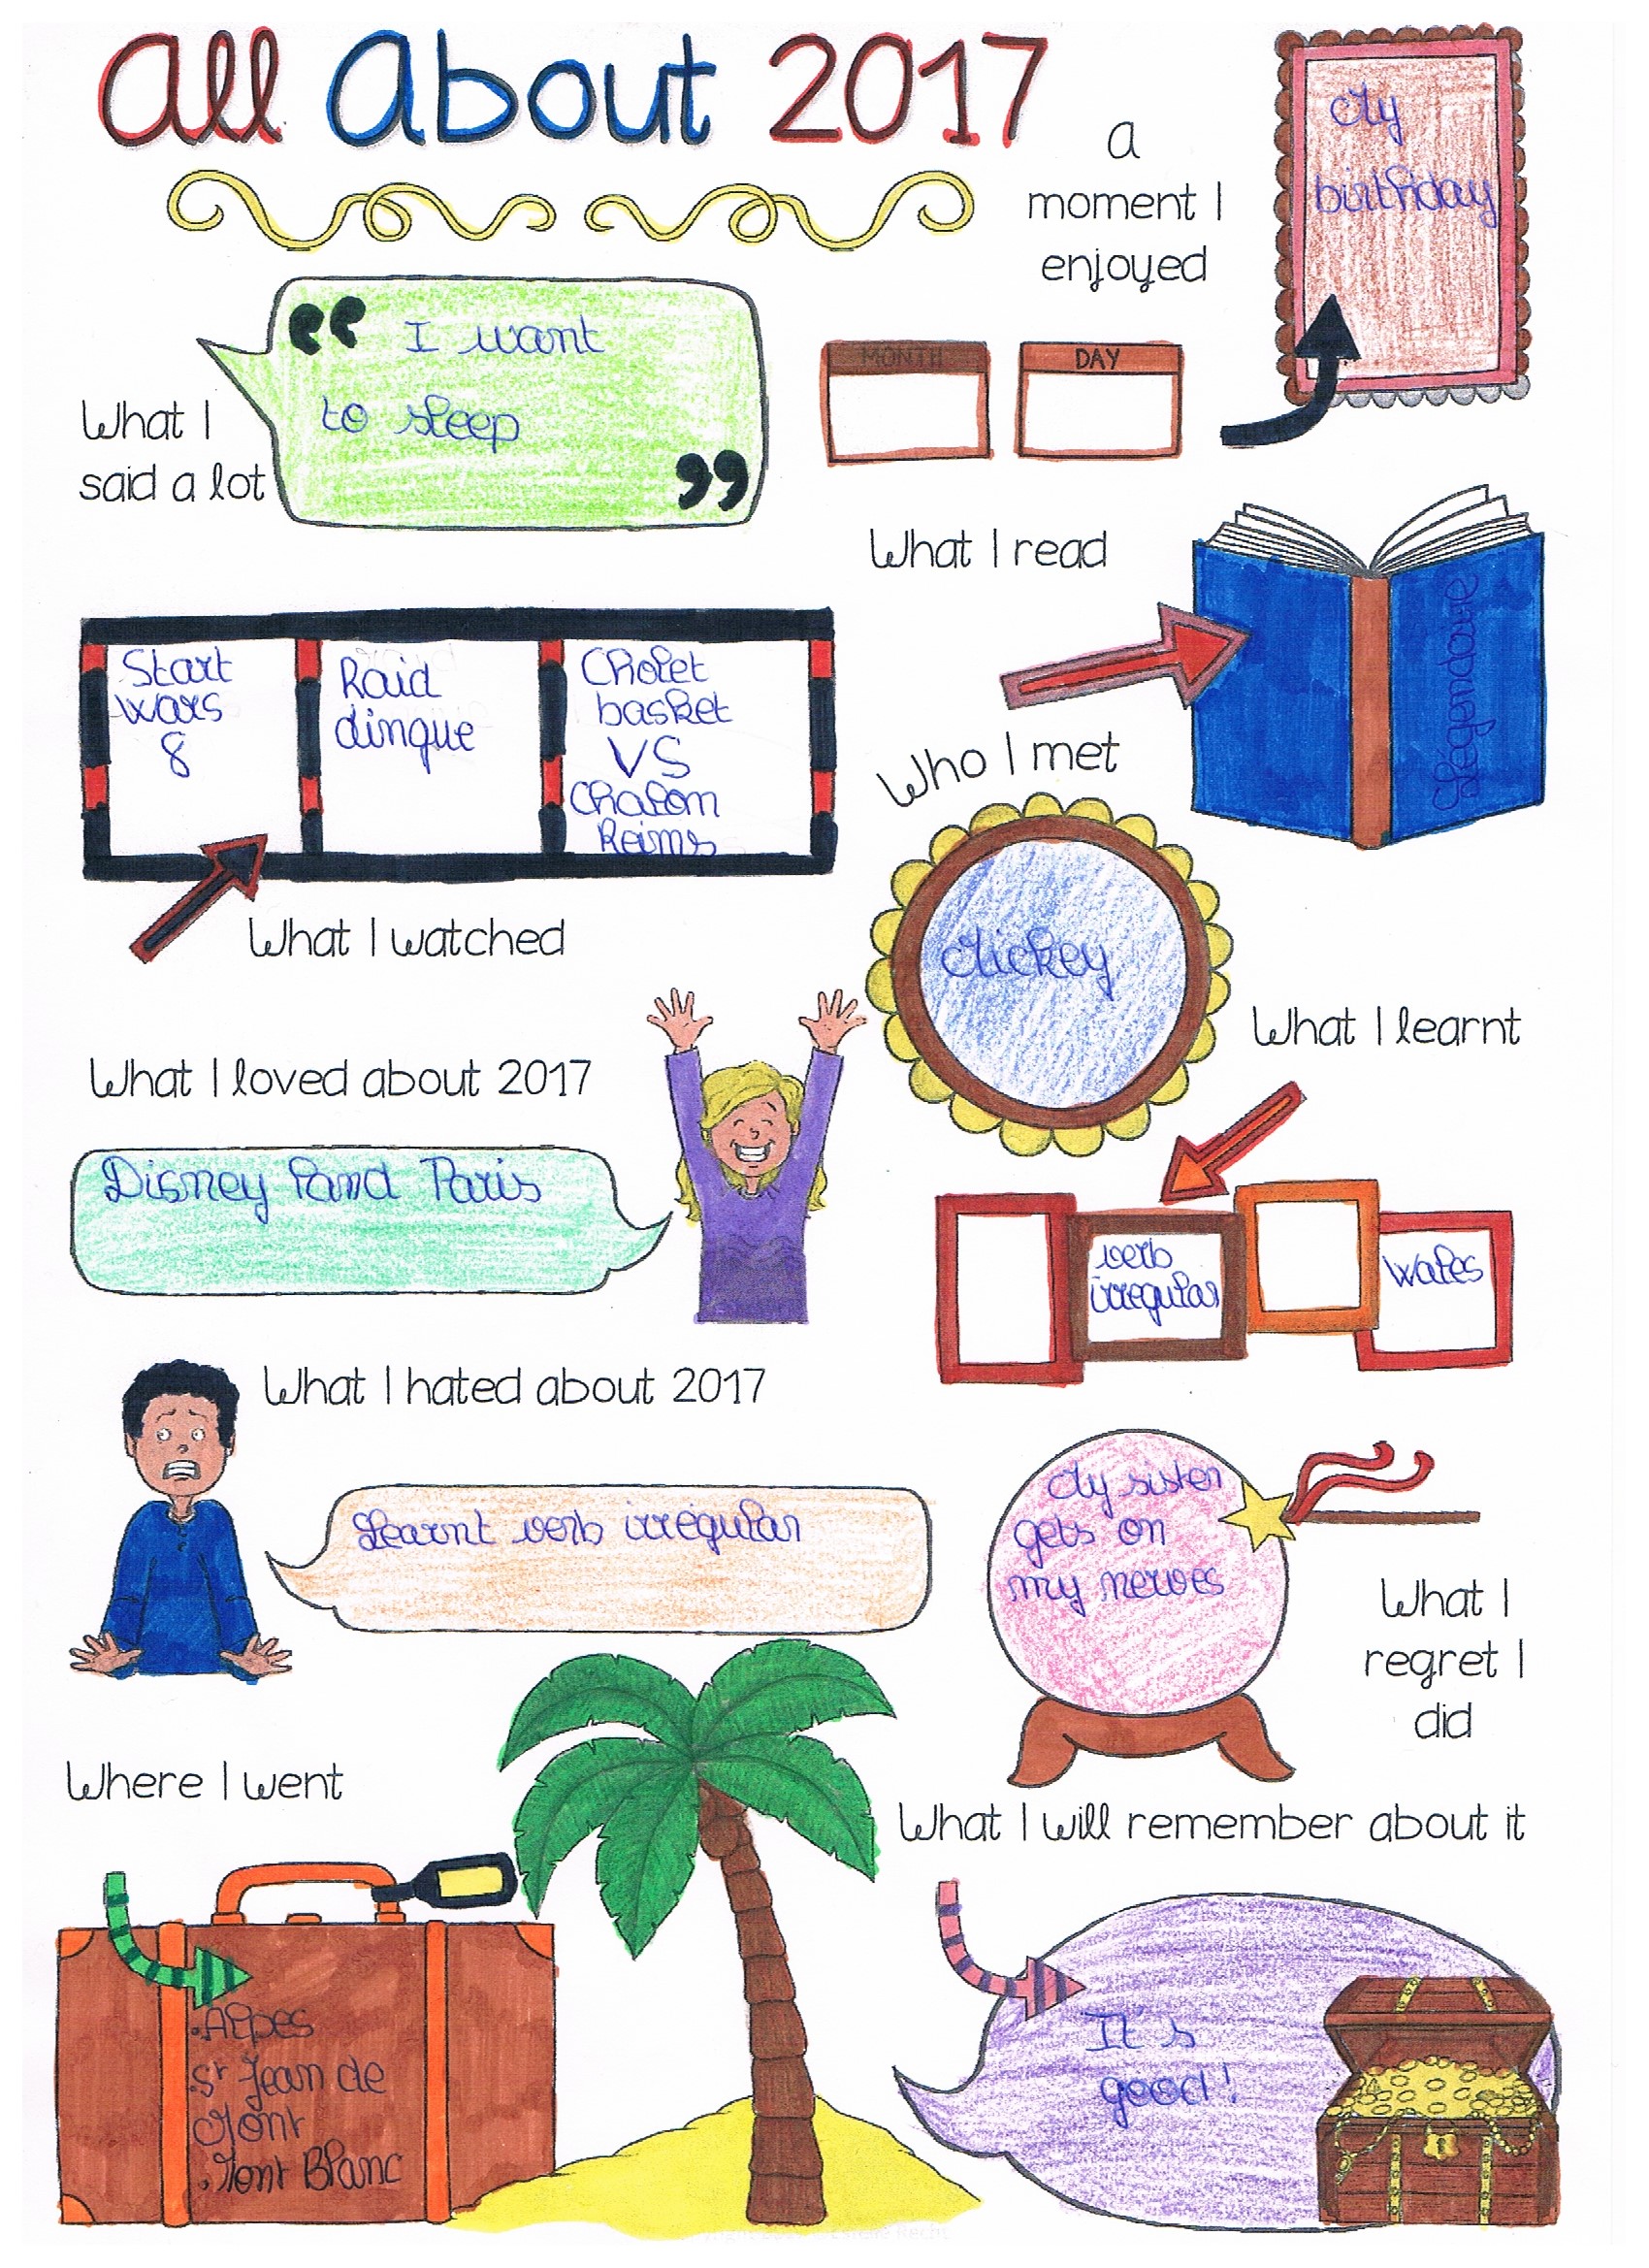 All About 2017
a
moment I
enjoyed
My
birthday
MONTH
DAY
What I
said a lot
I want
to sleep
What I read
Légendaire
Start
wars
8
Raid
dingue
Cholet
basket
VS
Chalon
Reims
What I watched
Who I met
Mickey
What I loved about 2017
Disney land Paris
What I learnt
verb
irregular
Wales
What I hated about 2017
Learnt verb irregular
My sister
gets on
my nerves
What I
regret I
did
Where I went
.Alpes
.St Jean de
Mont
.Mont Blanc
What I will remember about it
It's
good!